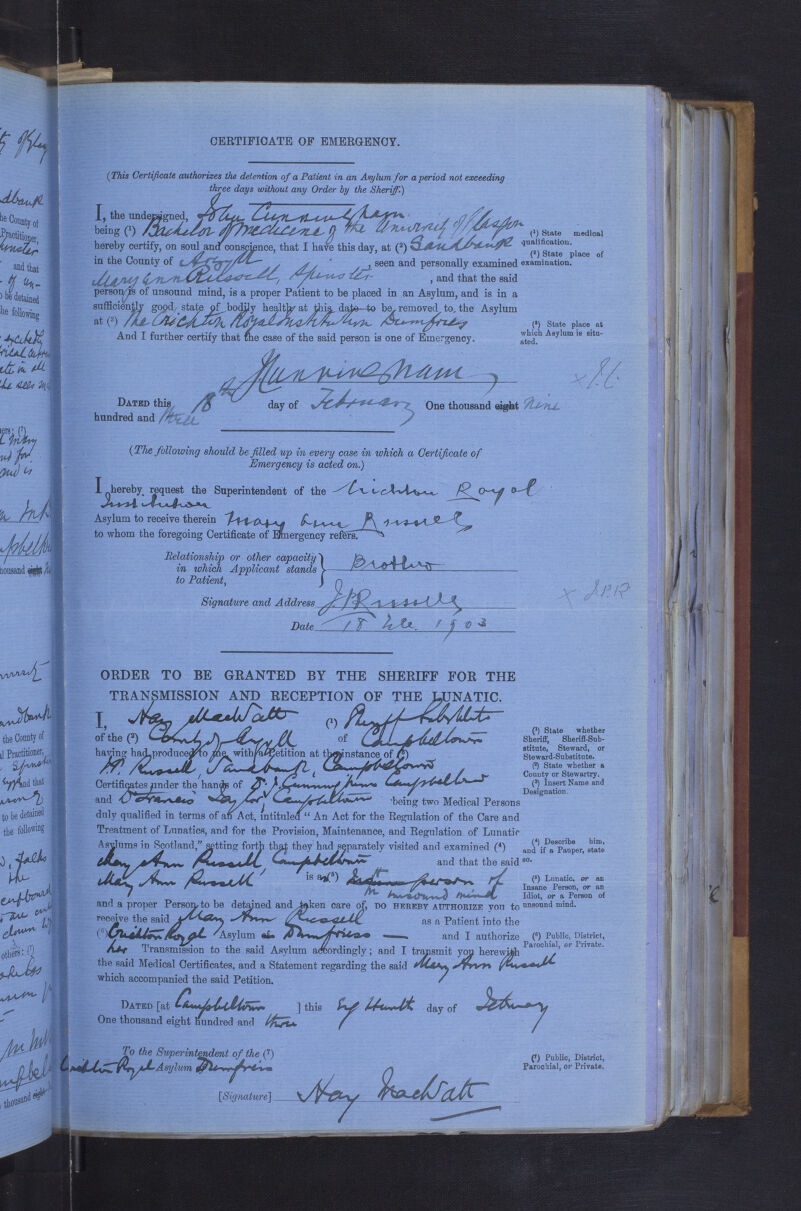 CERTIFICATE OF EMERGENCY.
(This Certificate authorizes the detention of a Patient in an Asylum for a period not exceeding
three days without any Order by the Sheriff.)
I, the undersigned, John Cunningham
being (¹) Bachelor of Medicine of the University of Glasgow
hereby certify, on soul and conscience, that I have this day, at (²) Sandbank
in the County of Argyll, seen and personally examined
Mary Ann Russell, Spinster, and that the said
person is of unsound mind, is a proper Patient to be placed in an Asylum, and is in a
sufficiently good state of bodily health at this date to be removed to the Asylum
at (³) The Crichton Royal Institution Dumfries
And I further certify that the case of the said person is one of Emergency.
(¹) State medical
qualification.
(²) State place of
examination.
(³) State place at
which Asylum is situ-
ated.
J Cunningham
DATED this 18th day of February One thousand eight Nine
hundred and three
(The following should be filled up in every case in which a Certificate of
Emergency is acted on.)
I hereby request the Superintendent of the Crichton Royal
Institution
Asylum to receive therein Mary Ann Russell
to whom the foregoing Certificate of Emergency refers.
Relationship or other capacity
in which Applicant stands
to Patient, Brother
Signature and Address J.P. Russell
x J.P.R
Date 18 Feb. 1903
ORDER TO BE GRANTED BY THE SHERIFF FOR THE
TRANSMISSION AND RECEPTION OF THE LUNATIC.
I, Hay MacWatt (¹) Sheriff Substitute
of the (²) County of Argyll of Campbeltown
having had produced to me, with a Petition at the instance of (³)
Russell, Sandbank, Campbeltown
Certificates under the hands of Dr. J. Cunningham Campbeltown
and Dr Francis Taylor Campbeltown being two Medical Persons
duly qualified in terms of an Act, intituled "An Act for the Regulation of the Care and
Treatment of Lunatics, and for the Provision, Maintenance, and Regulation of Lunatic
Asylums in Scotland," setting forth that they had separately visited and examined (⁴)
Mary Ann Russell, Campbeltown and that the said
Mary Ann Russell is a(⁵) person of
unsound mind
and a proper Person to be detained and taken care of, DO HEREBY AUTHORIZE YOU to
receive the said Mary Ann Russell as a Patient into the
(⁶) Crichton Royal Asylum Dumfriess and I authorize
her Transmission to the said Asylum accordingly; and I transmit you herewith
the said Medical Certificates, and a Statement regarding the said Mary Ann Russell
which accompanied the said Petition.
(¹) State whether
Sheriff, Sheriff-Sub-
stitute, Steward, or
Steward-Substitute.
(²) State whether a
County or Stewartry.
(³) Insert Name and
Designation.
(⁴) Describe him,
and if a Pauper, state
so.
(⁵) Lunatic, or an
Insane Person, or an
Idiot, or a Person of
unsound mind.
(⁶) Public, District,
Parochial, or Private.
DATED [at Campbeltown ] this Eighteenth day of February
One thousand eight hundred and three
To the Superintendent of the (⁷)
Crichton Royal Asylum Dumfries
(⁷) Public, District,
Parochial, or Private.
[Signature] Hay MacWatt